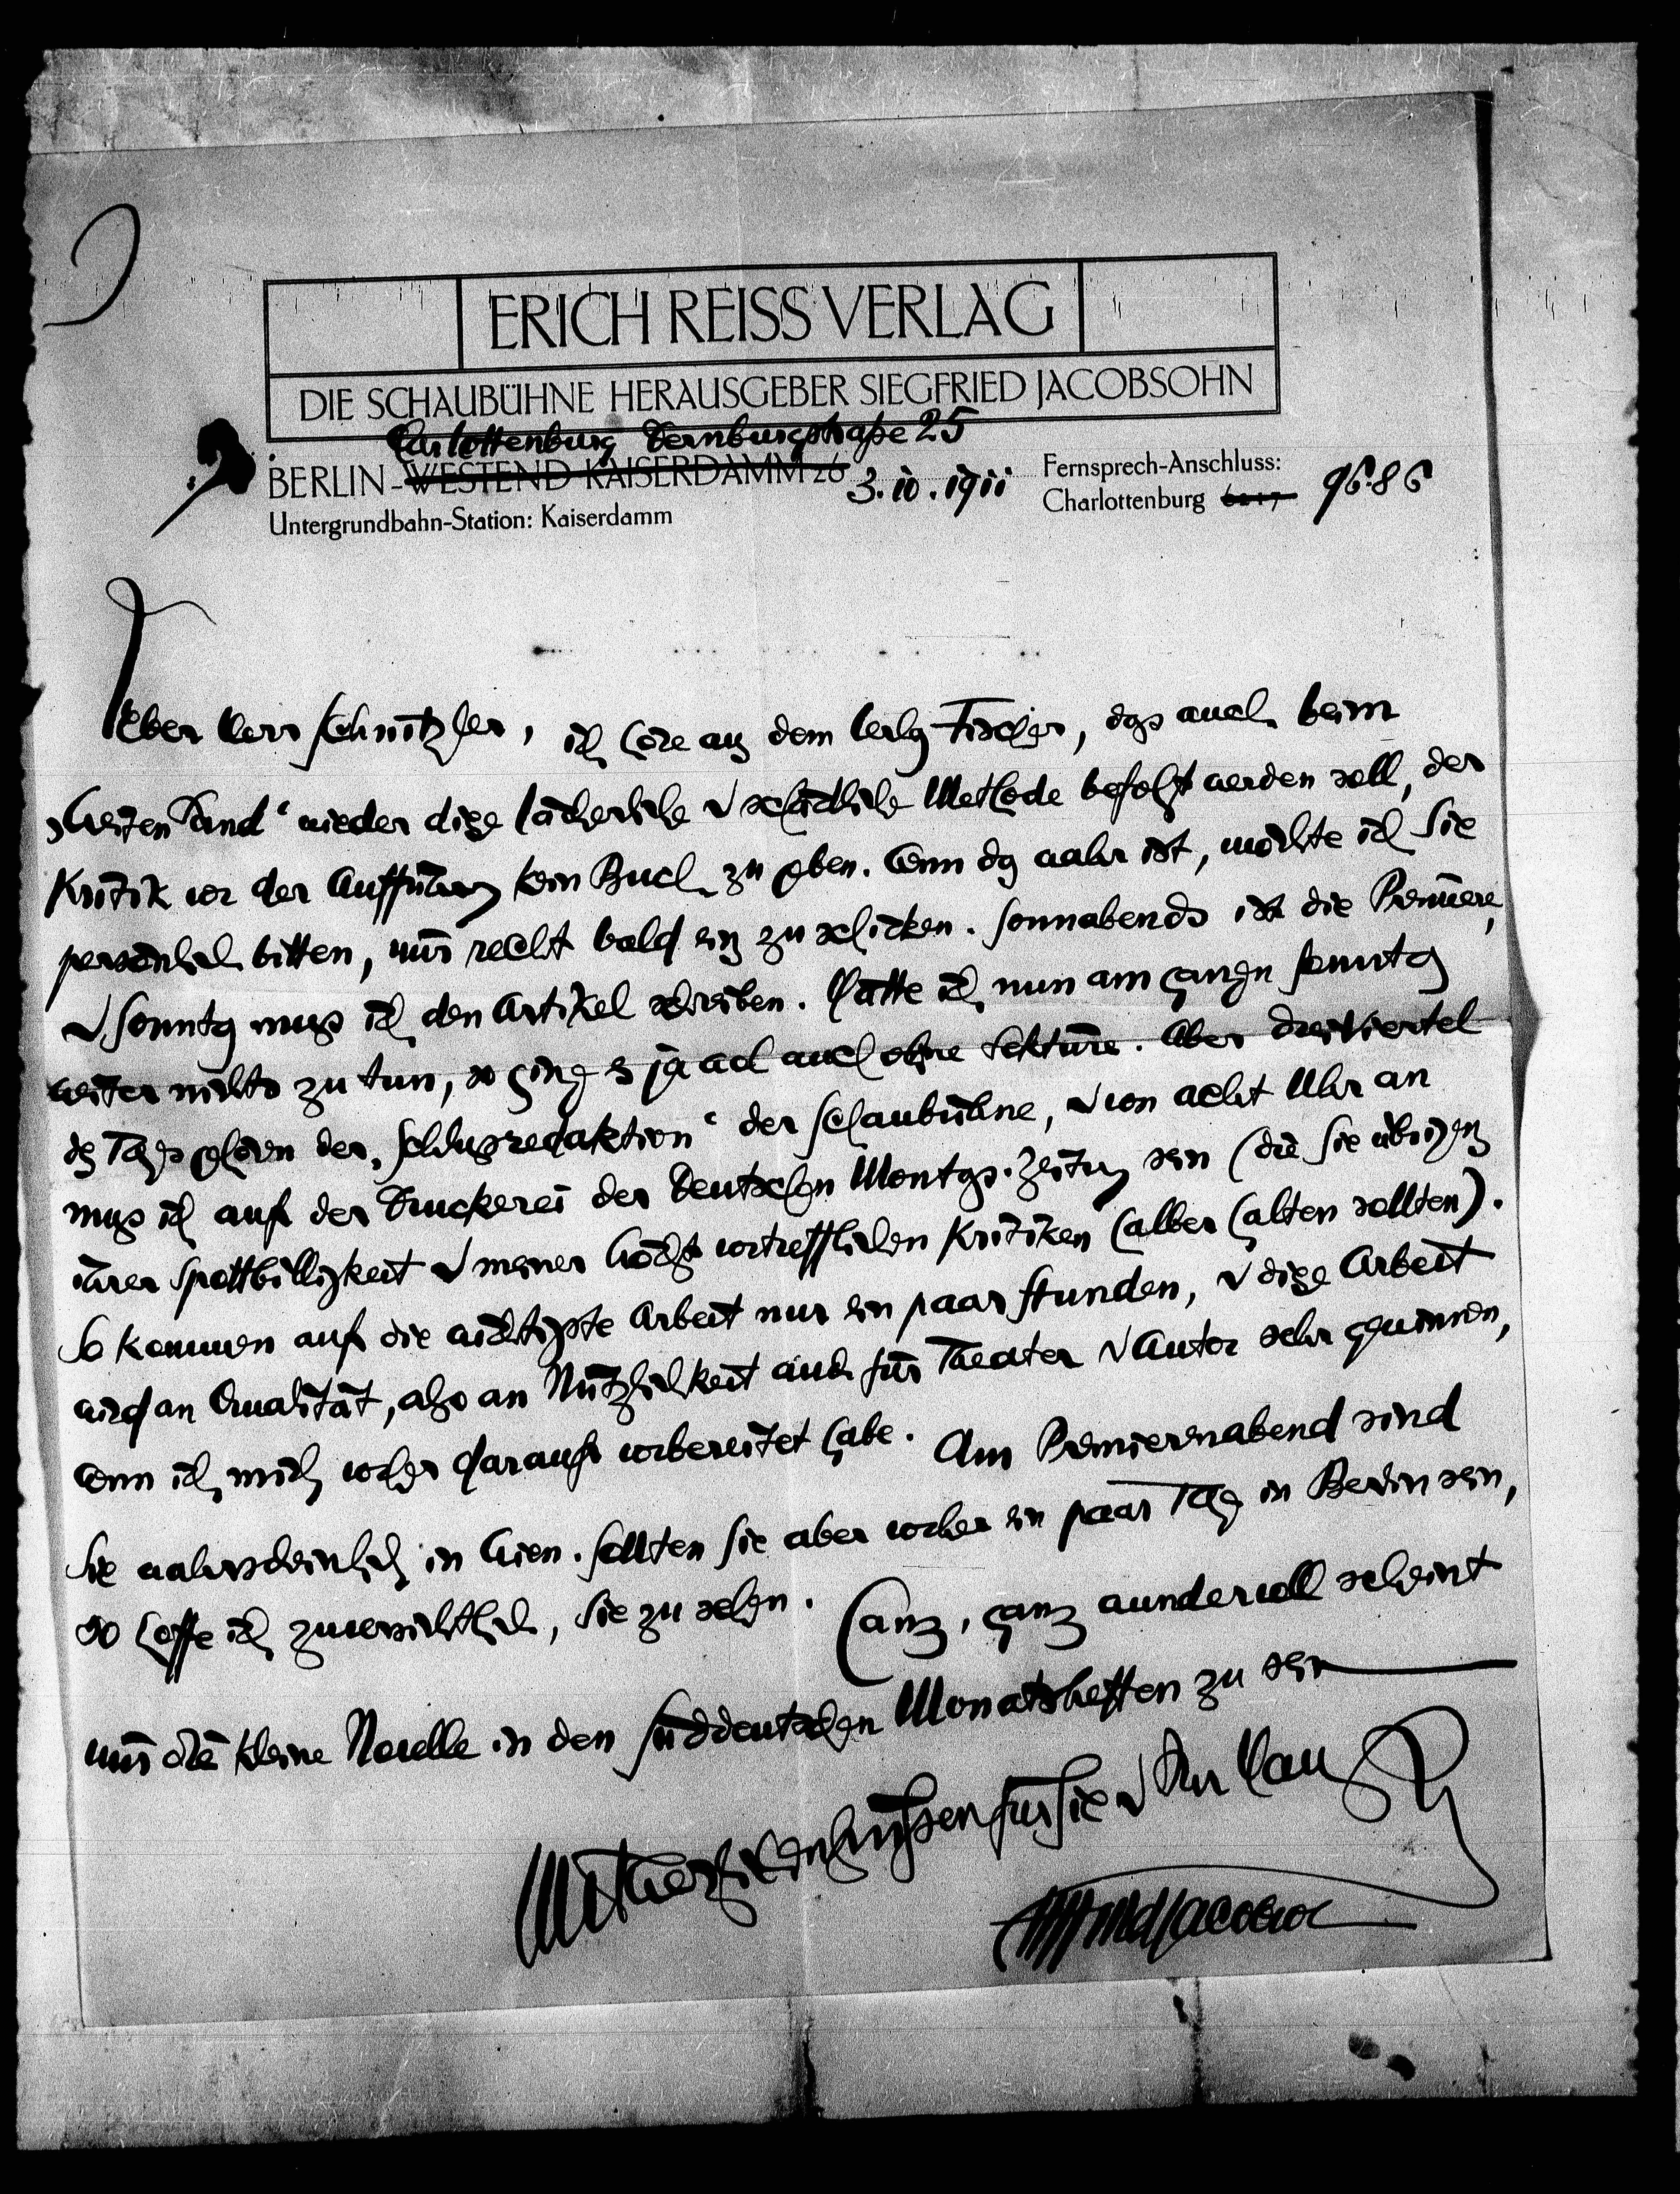 ERICH REISS VERLAG
DIE SCHAUBÜHNE HERAUSGEBER SIEGFRIED JACOBSOHN
Charlottenburg Dernburgstraße 25
BERLIN-WESTEND KAISERDAMM 26 3.10.1911 Fernsprech-Anschluss:
Untergrundbahn-Station: Kaiserdamm Charlottenburg 9686
Lieber Herr Schnitzler, ich höre aus dem Verlag Fischer, dass auch beim
„Weiten Land“ wieder diese lächerliche u schädliche Methode befolgt werden soll, der
Kritik vor der Aufführung kein Buch zu geben. Wenn das wahr ist, möchte ich Sie
persönlich bitten, mir recht bald eins zu schicken. Sonnabends ist die Premiere,
u Sonntag muss ich den Artikel schreiben. Hätte ich nun am ganzen Sonntag
weiter nichts zu tun, so ging es ja auch ohne Lektüre. Aber dreiviertel
des Tages gehören der „Schlussredaktion“ der Schaubühne, u von acht Uhr an
muss ich auf der Druckerei der Deutschen Montags-Zeitung sein (die Sie übrigens
ihrer Spottbilligkeit u meiner höchst vortrefflichen Kritiken halber halten sollten).
So kommen auf die wichtigste Arbeit nur ein paar Stunden, u diese Arbeit
wird an Qualität, also an Nützlichkeit auch für Theater u Autor sehr gewinnen,
wenn ich mich vorher darauf vorbereitet habe. Am Premierenabend sind
Sie wahrscheinlich in Wien. Sollten Sie aber vorher ein paar Tage in Berlin sein,
so hoffe ich zuversichtlich, Sie zu sehen. Ganz, ganz wundervoll scheint
mir die kleine Novelle in den Süddeutschen Monatsheften zu sein
Mit herzlichen Grüßen für Sie u Ihr Haus
Ihr
Siegfried Jacobsohn